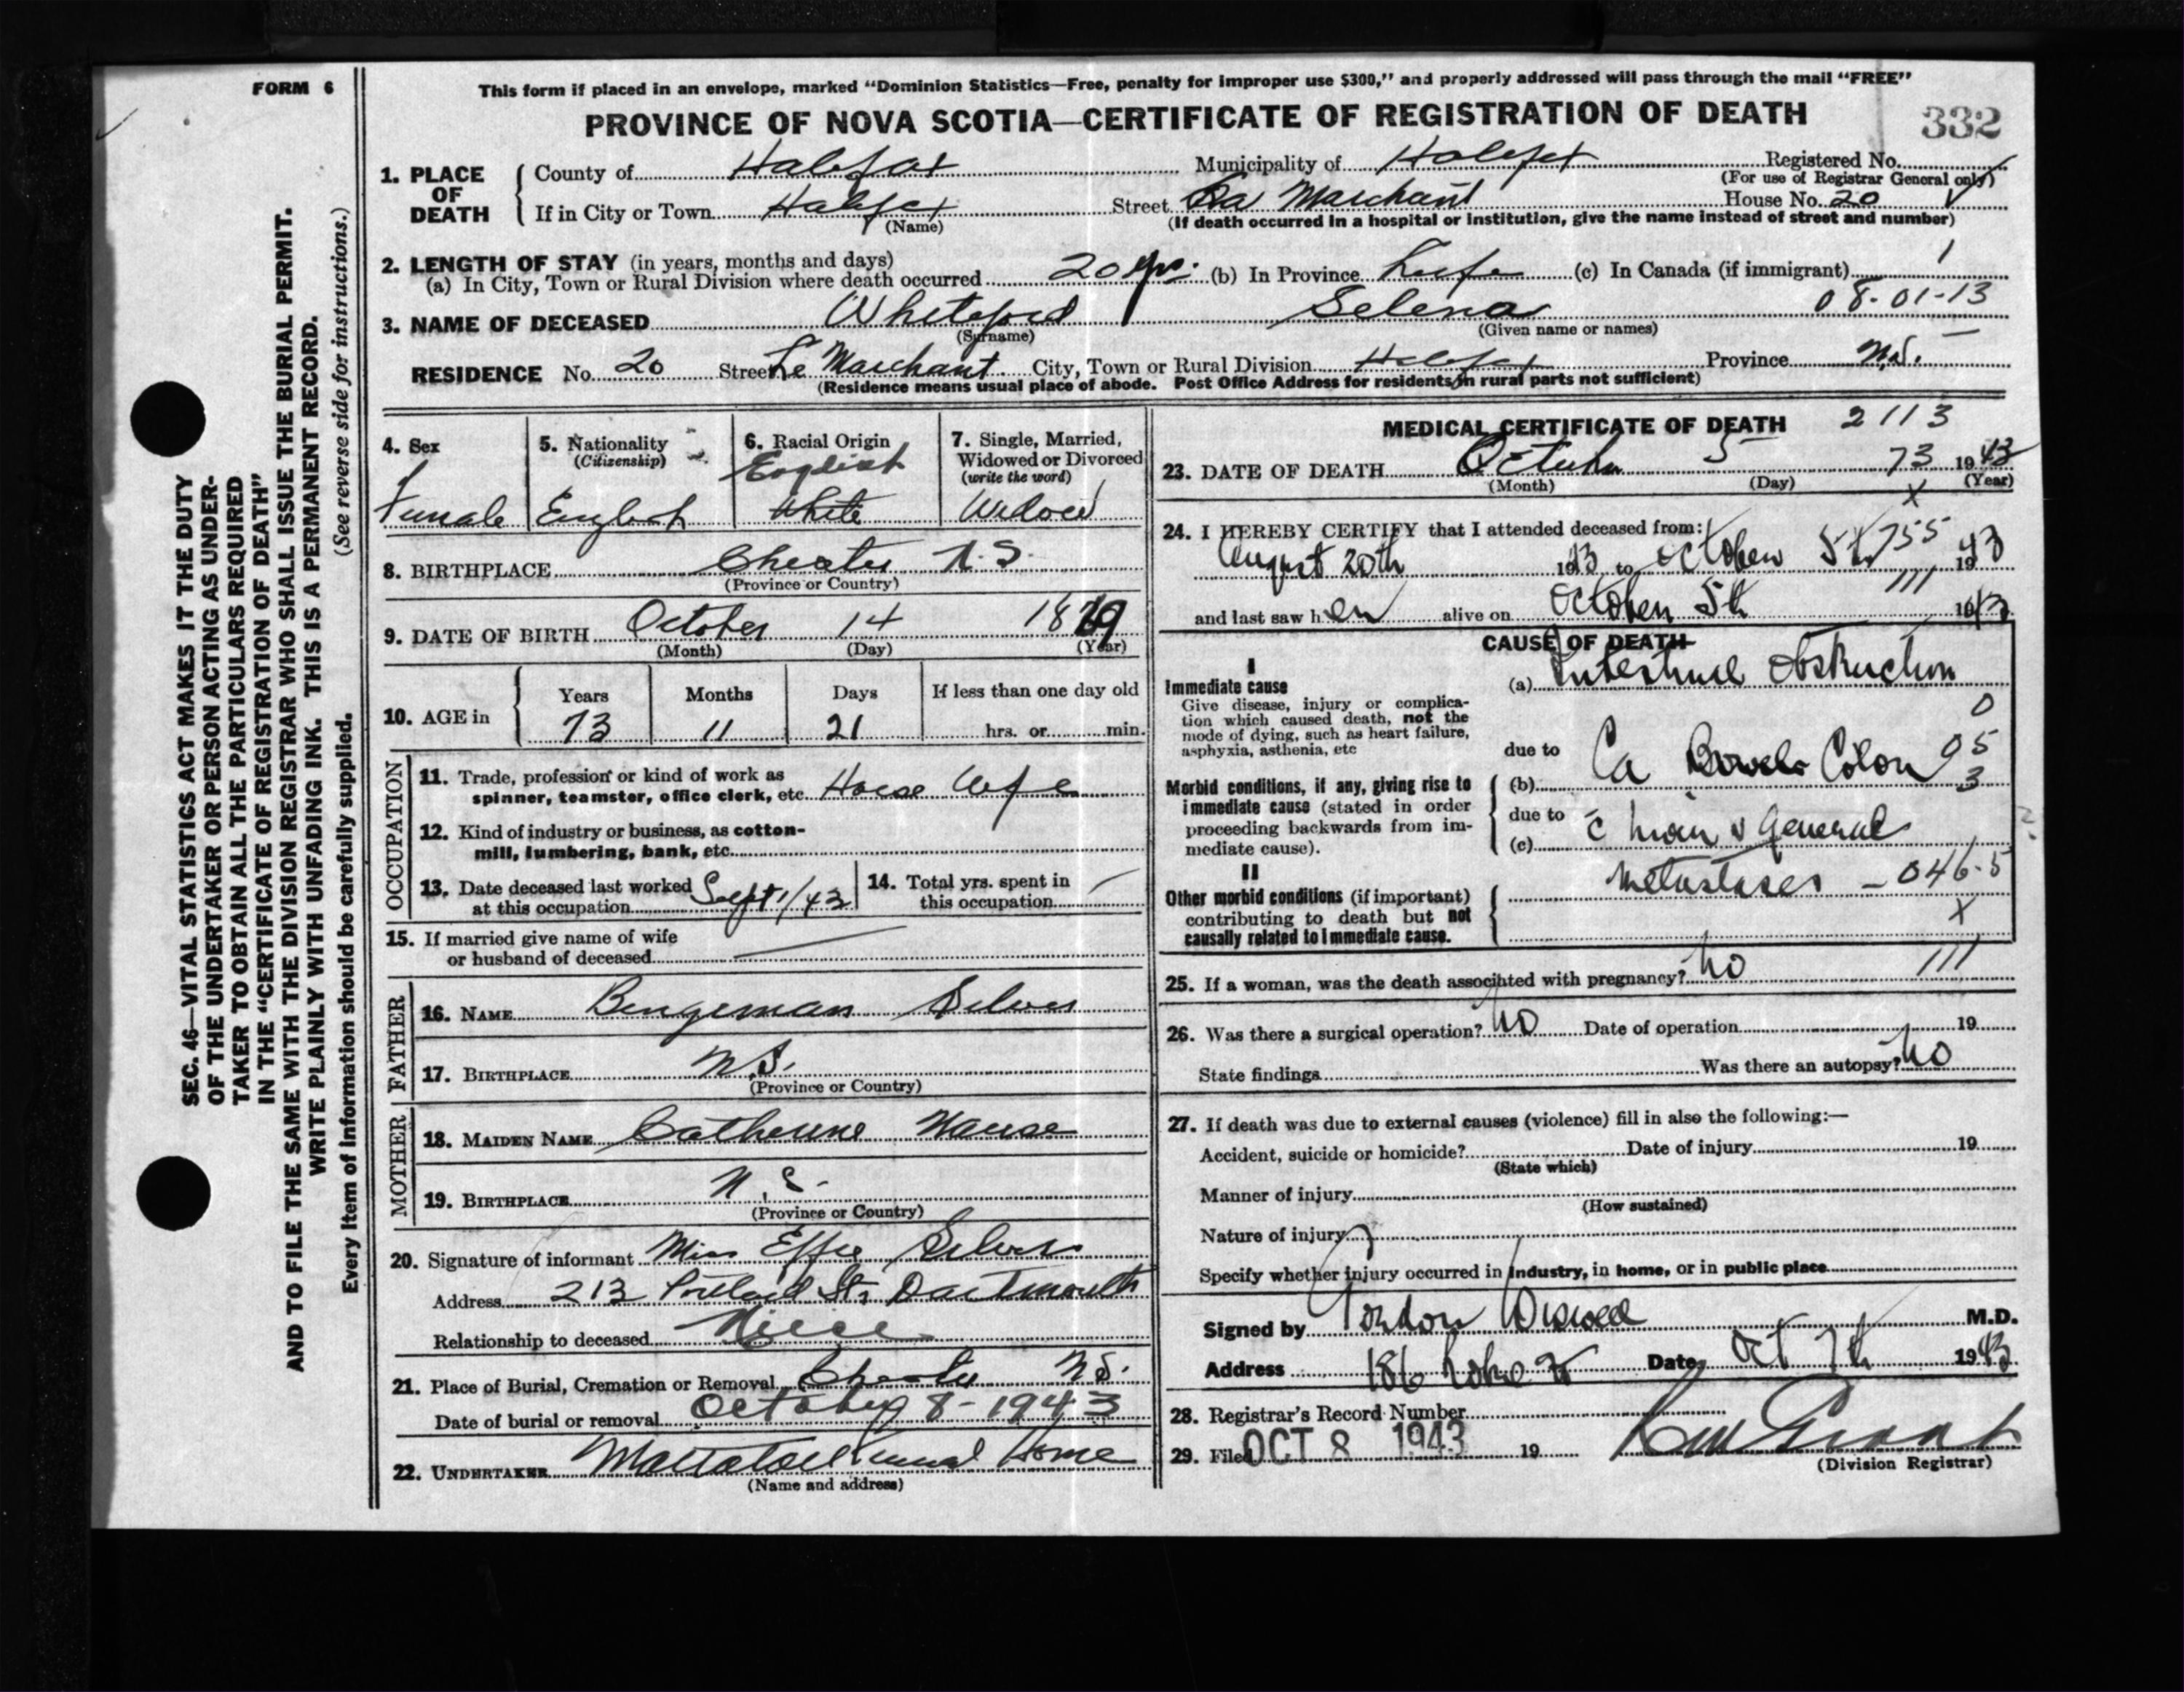 FORM 6
This form if placed in an envelope, marked "Dominion Statistics—Free, penalty for improper use $300," and properly addressed will pass through the mail "FREE"
PROVINCE OF NOVA SCOTIA—CERTIFICATE OF REGISTRATION OF DEATH
332
1. PLACE OF DEATH
County of Halifax Municipality of Halifax Registered No.
(For use of Registrar General only)
If in City or Town Halifax Street La Marchant House No. 20
(Name) (If death occurred in a hospital or institution, give the name instead of street and number)
2. LENGTH OF STAY (in years, months and days)
(a) In City, Town or Rural Division where death occurred 20 yrs. (b) In Province Life (c) In Canada (if immigrant)
08-01-13
3. NAME OF DECEASED Whiteford Selena
(Surname) (Given name or names)
RESIDENCE No. 20 Street Le Marchant City, Town or Rural Division Halifax Province N.S.
(Residence means usual place of abode. Post Office Address for residents in rural parts not sufficient)
4. Sex Female
5. Nationality (Citizenship) English
6. Racial Origin English White
7. Single, Married, Widowed or Divorced (write the word) Widow
8. BIRTHPLACE Chester N.S.
(Province or Country)
9. DATE OF BIRTH October 14 1869
(Month) (Day) (Year)
10. AGE in Years 73 Months 11 Days 21 If less than one day old hrs. or min.
OCCUPATION
11. Trade, profession or kind of work as spinner, teamster, office clerk, etc. House Wife
12. Kind of industry or business, as cotton-mill, lumbering, bank, etc.
13. Date deceased last worked at this occupation Sept 1/43
14. Total yrs. spent in this occupation
15. If married give name of wife or husband of deceased
FATHER
16. NAME Bengeman Silver
17. BIRTHPLACE N.S.
(Province or Country)
MOTHER
18. MAIDEN NAME Catherine
19. BIRTHPLACE N.S.
(Province or Country)
20. Signature of informant Miss Effie Silver
Address 213 Portland St. Dartmouth
Relationship to deceased Niece
21. Place of Burial, Cremation or Removal Chester N.S.
Date of burial or removal October 8-1943
22. UNDERTAKER Mattatall Funeral Home
(Name and address)
MEDICAL CERTIFICATE OF DEATH 2113
23. DATE OF DEATH October 5 73 1943
(Month) (Day) (Year)
x
24. I HEREBY CERTIFY that I attended deceased from:
August 20th 1943 to October 5th 1943
755
111
and last saw her alive on October 5th 1943
CAUSE OF DEATH
I
Immediate cause
Give disease, injury or complication which caused death, not the mode of dying, such as heart failure, asphyxia, asthenia, etc
(a) Intestinal Obstruction
0
due to
Morbid conditions, if any, giving rise to immediate cause (stated in order proceeding backwards from immediate cause).
(b) Ca Bowel Colon 05
3
due to
(c) General
Metastases - 046.5
x
II
Other morbid conditions (if important) contributing to death but not causally related to immediate cause.
25. If a woman, was the death associated with pregnancy? no 111
26. Was there a surgical operation? no Date of operation 19
State findings Was there an autopsy? no
27. If death was due to external causes (violence) fill in also the following:—
Accident, suicide or homicide? Date of injury 19
(State which)
Manner of injury
(How sustained)
Nature of injury
Specify whether injury occurred in industry, in home, or in public place
Signed by Gordon Wiswell M.D.
Address 186 Date Oct 7th 1943
28. Registrar's Record Number
29. Filed OCT 8 1943 19
(Division Registrar)
SEC. 46—VITAL STATISTICS ACT MAKES IT THE DUTY
OF THE UNDERTAKER OR PERSON ACTING AS UNDER-
TAKER TO OBTAIN ALL THE PARTICULARS REQUIRED
IN THE "CERTIFICATE OF REGISTRATION OF DEATH"
AND TO FILE THE SAME WITH THE DIVISION REGISTRAR WHO SHALL ISSUE THE BURIAL PERMIT.
WRITE PLAINLY WITH UNFADING INK. THIS IS A PERMANENT RECORD.
Every item of information should be carefully supplied. (See reverse side for instructions.)